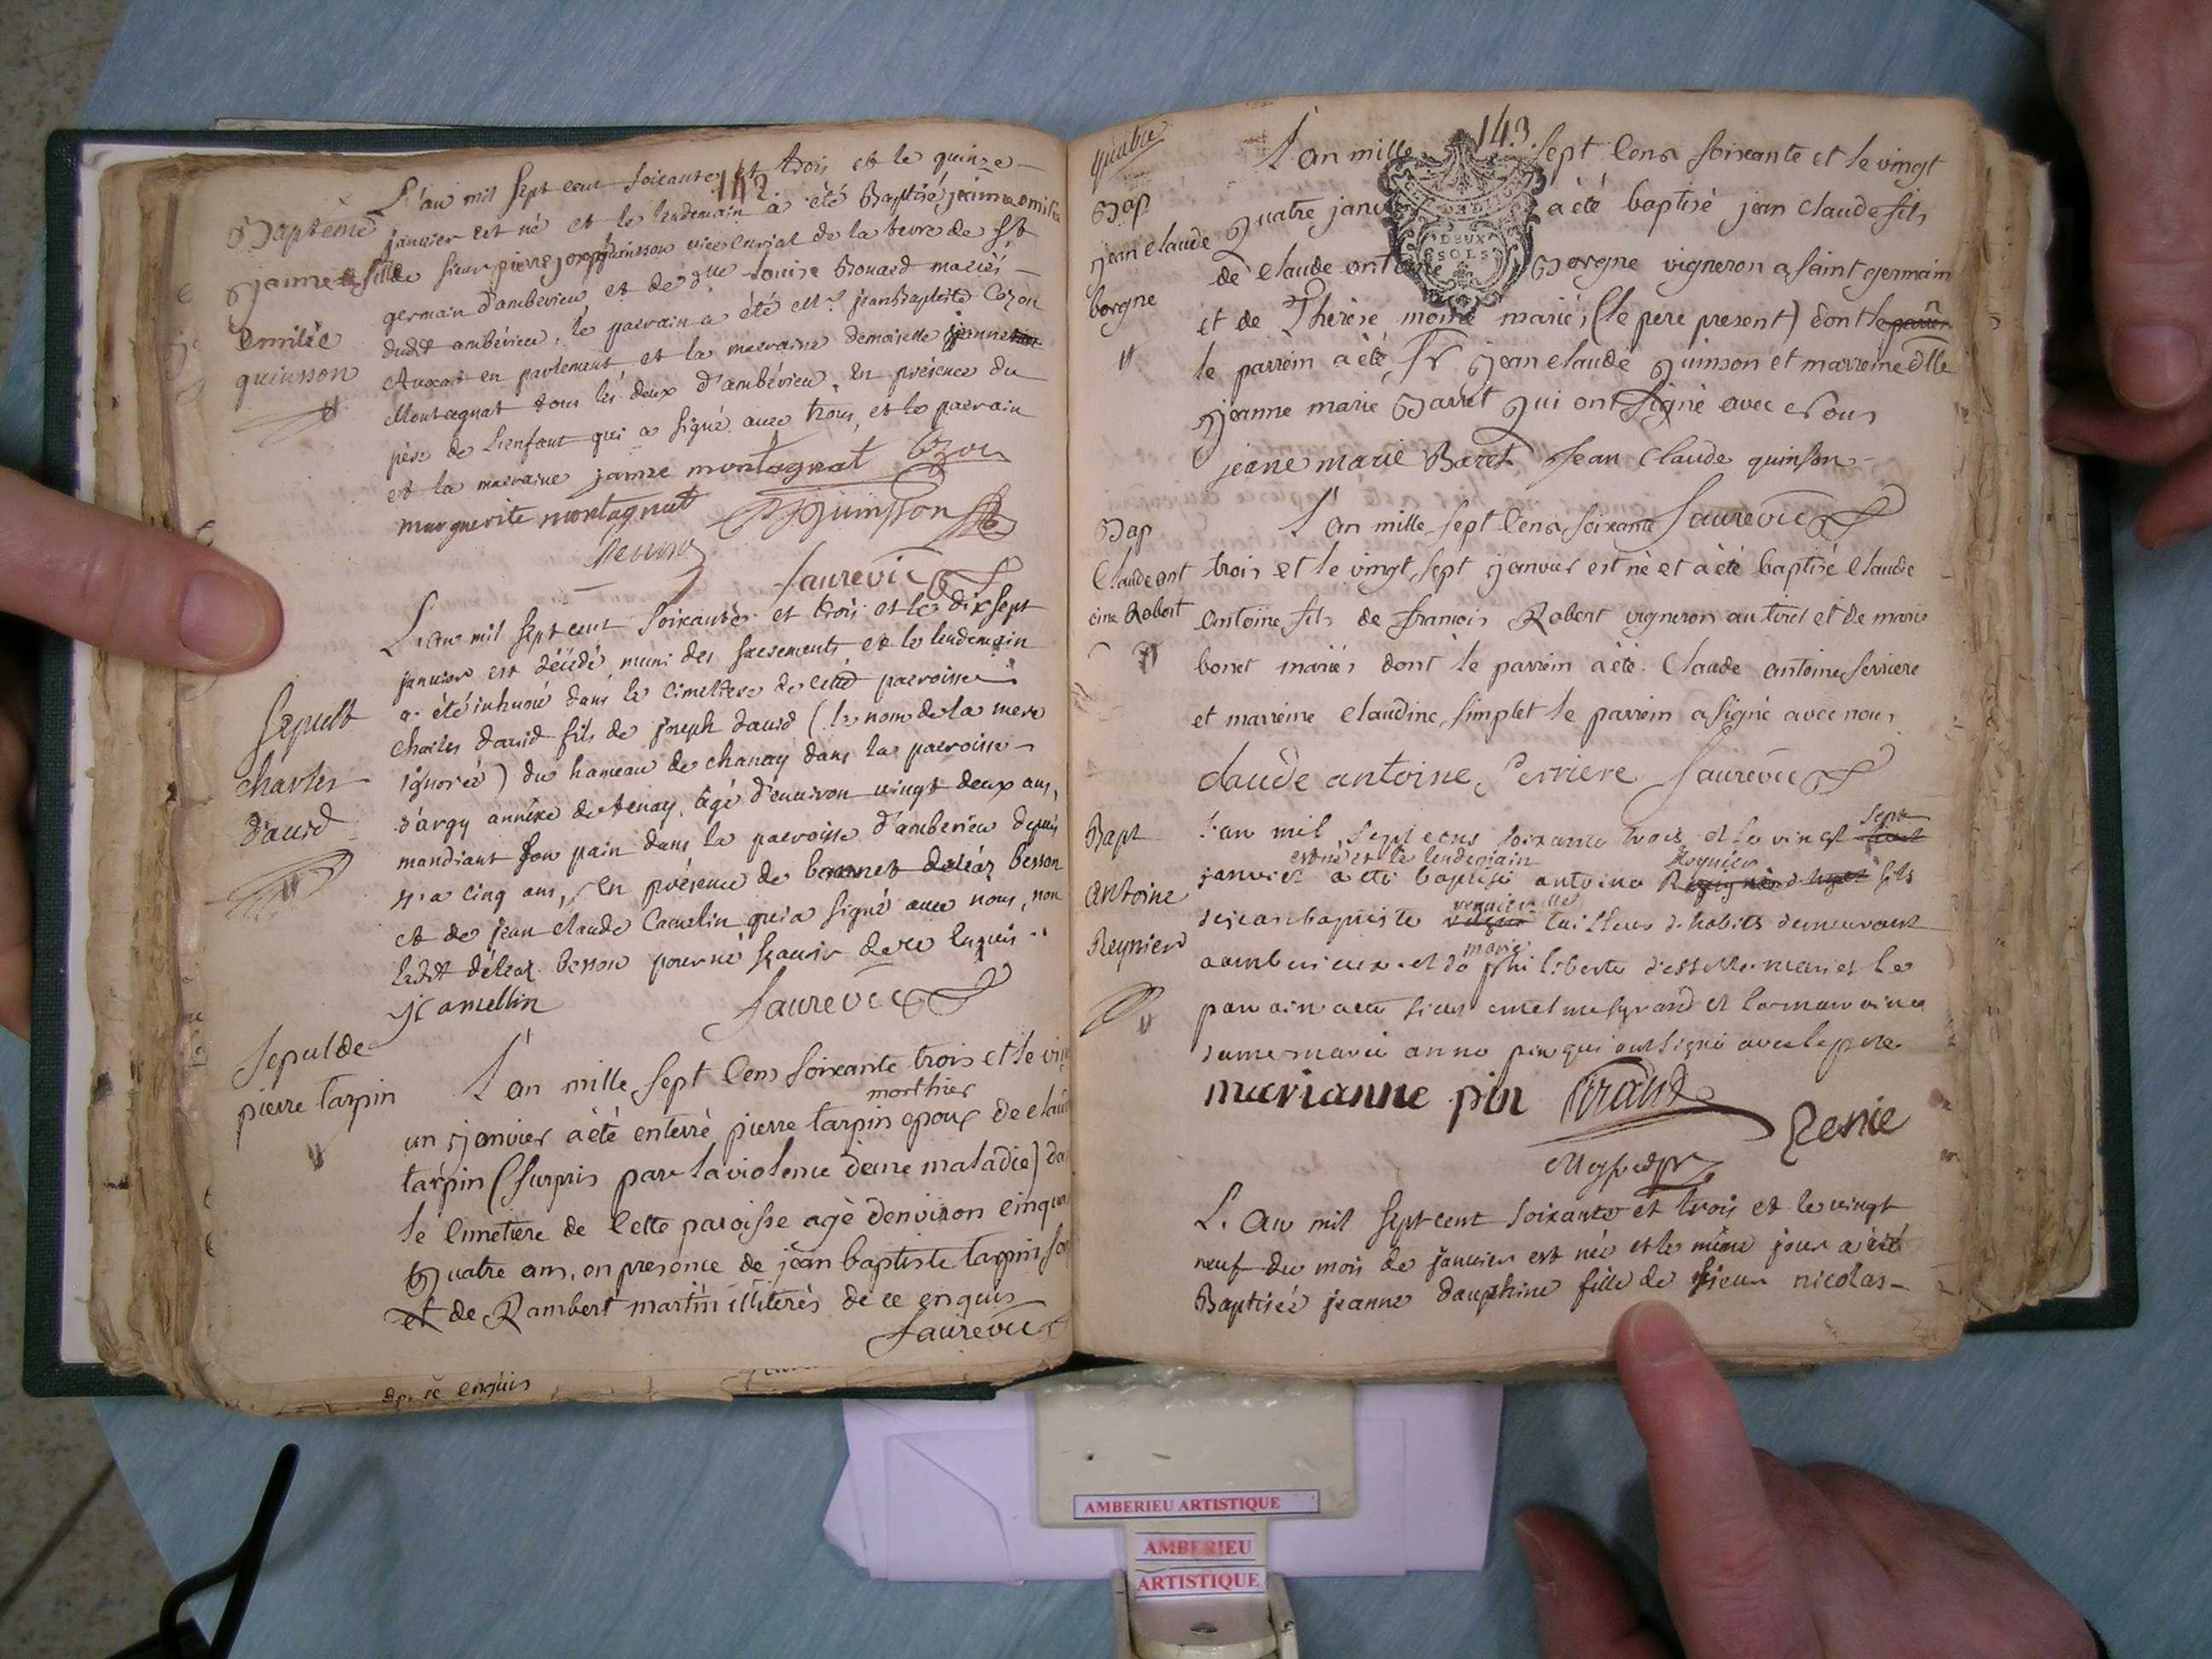 142
L'an mil sept cent soixante et trois et le quinze
janvier est né et le lendemain a été Baptisé jeanne emilie
fille de sieur pierre joseph quinsson vice curial de la terre de st
germain d'ambérieu et de dlle Louise Bouard mariés
dudit ambérieu, le parrain a été Mr jean Baptiste Cozon
Avocat en parlement et la marraine demoiselle jeanne
Montagnat tous les deux d'ambérieu, En présence du
père de L'enfant qui a signé avec nous, et le parrain
et la marraine janne montagnat Cozon
marguerite montagnat Quinsson
faurevic
Baptême
janne
Emilie
quinsson
L'an mil sept cent soixante et trois et le dix sept
janvier est décédé muni des sacrements et le lendemain
a été inhumé dans le cimettere de cette parroisse
charles david fils de joseph david (le nom de la mere
ignoréé) du hameau de chanay dans la parroisse
d'argy annéxe de tenay, agé d'environ vingt deux ans,
mandiant son pain dans la parroisse d'ambérieu depuis
cinq ans, En présence de besson
et de jean claude Camelin qui a signé avec nous, non
ledit besson pour ne sçavoir de ce Enquis
jC amellin faurevic
sepult
charles
david
L'an mille sept Cens soixante trois et le vin
morthier
un janvier a été enterré pierre tarpin epoux de clau
tarpin (surpris par la violence deune maladie) da
le Cimetière de Cette paroisse agè denviron cinqua
Quatre ans, en presence de jean baptiste tarpin
et de Rambert martin illiterès de ce enquis
faurevic
sepulde
pierre tarpin
de ce enquis
quatre
143.
L'an mille sept Cens soixante et le vingt
Quatre janv a été baptisé jean claude fils
DEUX
SOLS
de claude antoine Borgne vigneron a saint germain
et de Thérèse moine mariés (le pere present) dont le parrein
le parrein a été Sr jean claude Quinson et marreine dlle
jeanne marie Barret Qui ont signé avec nous
jeane marie Baret Jean Claude quinson
faurevic
Bap
jean claude
borgne
L'an mille sept Cens soixante
trois et le vingt sept janvier est né et a été baptisé claude
antoine fils de francois Robert vigneron au tiret et de marie
bonet mariés dont le parrein a été Claude antoine serriere
et marreine claudine simplet le parrein a signé avec nous
claude antoine Serriere faurevic
Bap
Claude ant
oine Robert
sept
L'an mil sept cens soixante trois et le vingt
est né et le lendemain Reynier
janvier a été baptisé antoine fils
de jean baptiste tailleur d habits demeurant
marie
a amberieux et de philiberte mariés le
parrain a été sieur grand et la marraine
marie anne pin qui ont signé avec le pere
marianne pin Grand Renie
Bapt
antoine
Reynier
L'An mil sept cent soixante et trois et le vingt
neuf du mois de janvier est née et le même jour a été
Baptisée jeanne dauphine fille de sieur nicolas
AMBERIEU ARTISTIQUE
AMBERIEU
ARTISTIQUE